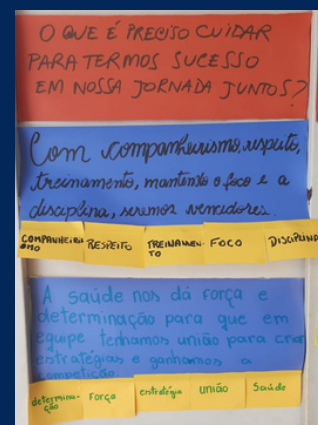 O QUE É PRECISO CUIDAR
PARA TERMOS SUCESSO
EM NOSSA JORNADA JUNTOS?
Com companheirismo, respeito,
treinamento, mantendo o foco e a
disciplina, seremos vencedores.
COMPANHEIRISMO RESPEITO TREINAMEN- FOCO DISCIPLINA
TO
A saúde nos dá força e
determinação para que em
equipe tenhamos união para criar
estratégias e ganhamos a
competição.
determina- força estratégia união Saúde
ção